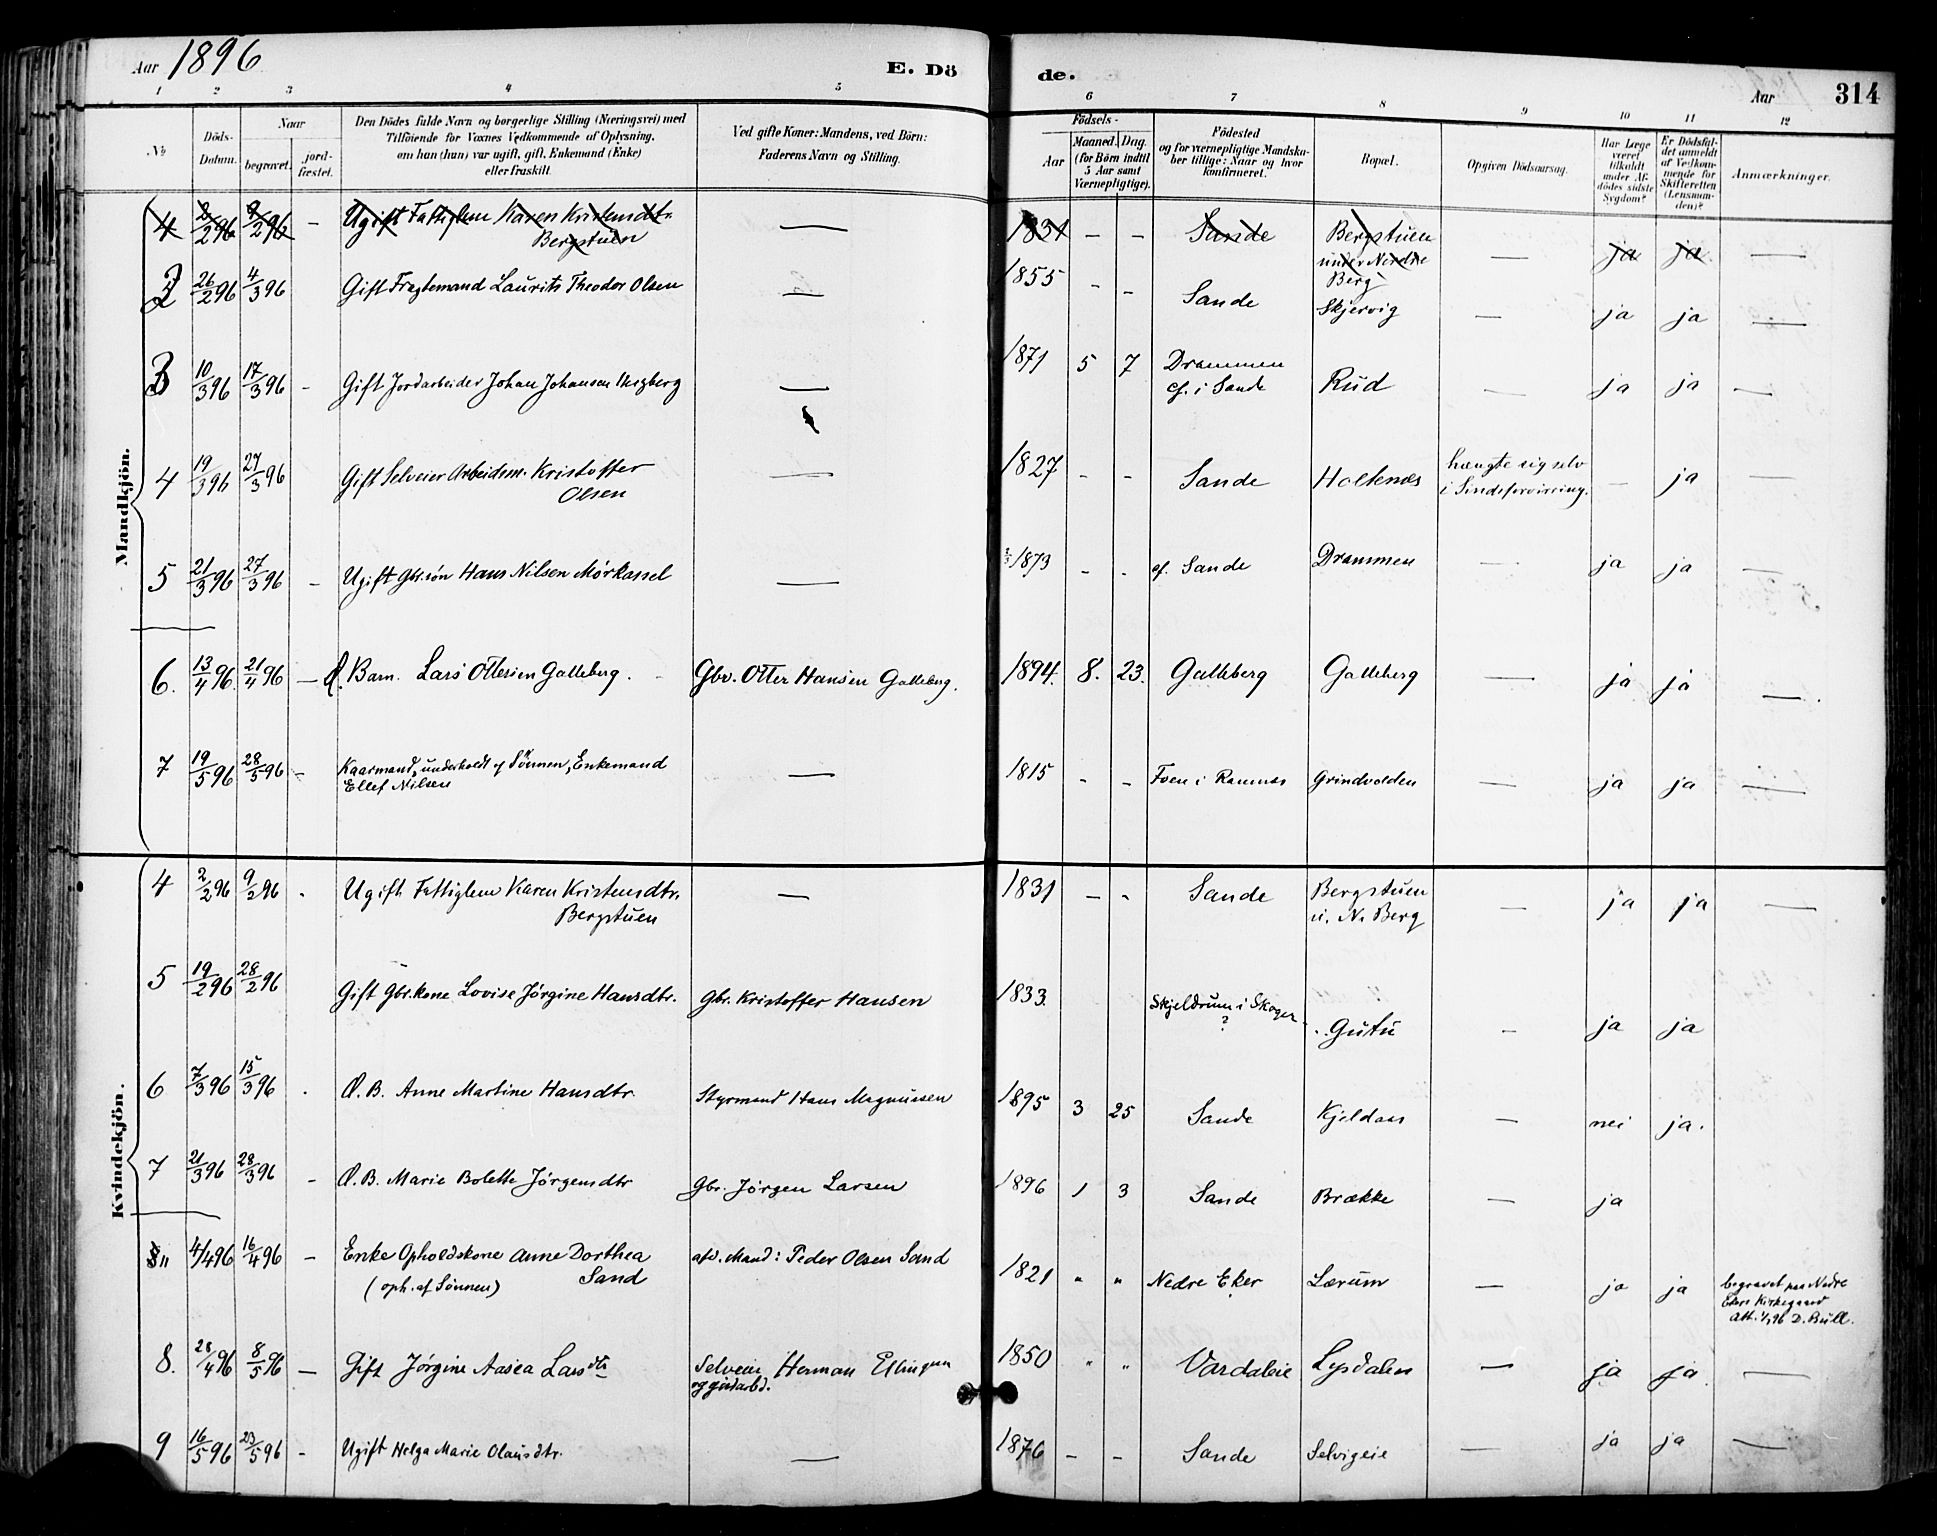 Aar 1896
E. Döde.
Aar 314
1 2 3 4 5 6 7 8 9 10 11 12
No
Döds-Datum.
Naar
begravet.
jordfæstet.
Den Dödes fulde Navn og borgerlige Stilling (Næringsvei) med
Tilföiende for Voxnes Vedkommende af Oplysning,
om han (hun) var ugift, gift, Enkemand (Enke)
eller fraskilt.
Ved gifte Koner: Mandens, ved Börn:
Faderens Navn og Stilling.
Födsels-
Aar
Maaned. Dag.
(for Börn indtil
5 Aar samt
Værnepligtige).
Födested
og for værnepligtige Mandskaber tillige: Naar og hvor
konfirmeret.
Bopæl.
Opgiven Dödsaarsag.
Har Læge
været
tilkaldt
under Afdödes sidste
Sygdom?
Er Dödsfaldet anmeldt
af Vedkommende for
Skifteretten
(Lensmanden)?
Anmærkninger.
Mandkjön.
4 2/2 96 9/2 96 – Ugift Fattiglem Karen Kristensdtr. Bergstuen — 1831 – – Sande Bergstuen under Nordre Berg — ja ja —
2 26/2 96 4/3 96 Gift Fragtemand Laurits Theodor Olsen — 1855 – – Sande Skjervig — ja ja —
3 10/3 96 17/3 96 – Gift Jordarbeider Johan Johansen — 1871 5 7 Drammen cf. i Sande Rud — ja ja —
4 19/3 96 27/3 96 Gift Selveier Arbeidsm. Kristoffer Olsen — 1827 – – Sande Holtenæs hængte sig selv i Sindsforvirring. — ja —
5 21/3 96 27/3 96 – Ugift Gbr.søn Hans Nilsen Mørkassel — 1873 – – cf. Sande Drammen — ja ja —
6. 13/4 96 21/4 96 — Æ. Barn. Lars Ottersen Galleberg. Gbr. Otter Hansen Galleberg. 1894. 8. 23. Galleberg Galleberg — ja ja —
7 19/5 96 28/5 96 – Kaarmand, underholdt af Sønnen, Enkemand Ellef Nilsen — 1815 – – Foen i Ramnæs Grindvolden — ja ja —
Kvindekjön.
4 2/2 96 9/2 96 - Ugift Fattiglem Karen Kristensdtr. Bergstuen — 1831 – – Sande Bergstuen u. N. Berg — ja ja —
5 19/2 96 28/2 96 Gift Gbr.kone Lovise Jørgine Hansdtr. Gbr. Kristoffer Hansen 1833. Skjeldrum i Skoger ? Gutu — ja ja
6 7/3 96 15/3 96 - Æ. B. Anne Martine Hansdtr Styrmand Hans Magnussen 1895 3 25 Sande Kjeldaas — nei ja.
7 21/3 96 28/3 96 – Æ. B. Marie Bolette Jørgensdtr Gbr. Jørgen Larsen 1896 1 3 Sande Brække — ja
" 4/4 96 16/4 96 – Enke Opholdskone Anne Dorthea Sand (oph. af Sønnen) afd. Mand: Peder Olsen Sand 1821 " " Nedre Eker Lærum — ja ja begravet paa Nedre Ekers Kirkegaard Att. D. Bull.
8. 28/4 96 8/5 96 — Gift Jørgine Aasea Larsdtr Selveier Herman Ellingsen 1850 " " Vardaleie Lysdalen — ja ja —
9 16/5 96 23/5 96 – Ugift Helga Marie Olausdtr. — 1876 – – Sande Selvigeie — ja ja —